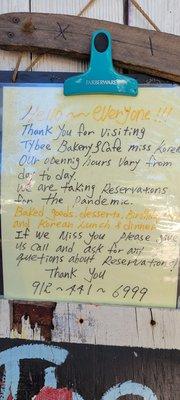 FARBERWARE
Hello ~ everyone!!!
Thank you for visiting
Tybee Bakery & Cafe miss Korea
Our opennig hours vary from
day to day.
We are taking Reservations
for the pandemic.
Baked goods, desserts,
and Korean Lunch & dinner
If We Miss you please give
us call and ask for any
quetions about Reservation
Thank you
912-441-6999